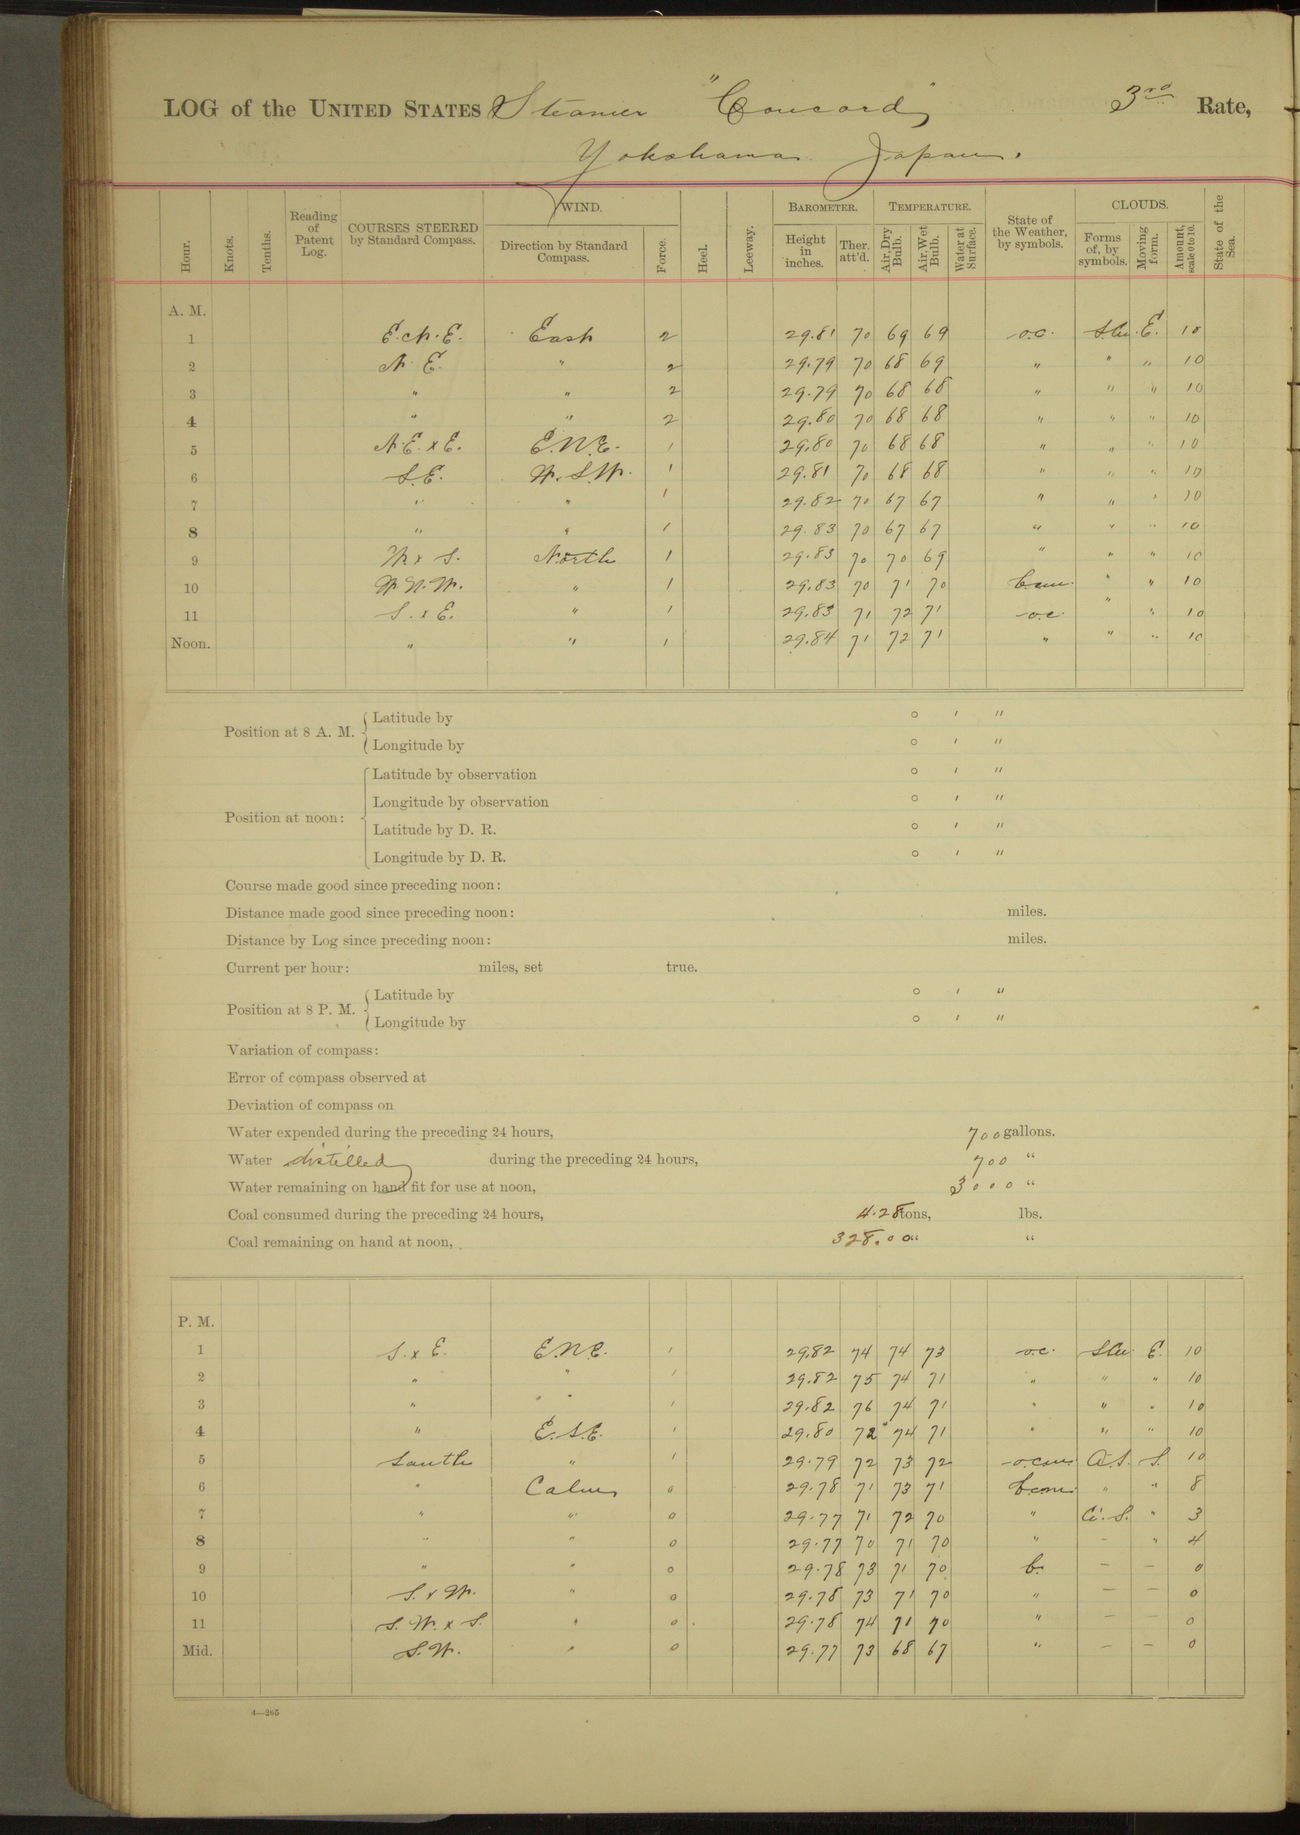 LOG of the UNITED STATES Steamer "Concord", 3rd Rate,
Yokohama Japan.
Hour. Knots. Tenths. Reading of Patent Log. COURSES STEERED by Standard Compass. WIND. Direction by Standard Compass. Force. Heel. Leeway. BAROMETER. Height in inches. Ther. att'd. TEMPERATURE. Air, Dry Bulb. Air, Wet Bulb. Water at Surface. State of the Weather, by symbols. CLOUDS. Forms of, by symbols. Moving form. Amount, scale 0 to 10. State of the Sea.
A. M.
1 E.N.E. East 2 29.81 70 69 69 o.c. S.Cu. E. 10
2 N.E. " 2 29.79 70 68 69 " " " 10
3 " " 2 29.79 70 68 68 " " " 10
4 " " 2 29.80 70 68 68 " " " 10
5 N.E. x E. E.N.E. 1 29.80 70 68 68 " " " 10
6 S.E. W.S.W. 1 29.81 70 68 68 " " " 10
7 " " 1 29.82 70 67 67 " " " 10
8 " " 1 29.83 70 67 67 " " " 10
9 W x S. North 1 29.83 70 70 69 " " " 10
10 W.N.W. " 1 29.83 70 71 70 b.c.m. " " 10
11 S. x E. " 1 29.83 71 72 71 o.c. " " 10
Noon. " " 1 29.84 71 72 71 " " " 10
Position at 8 A. M. { Latitude by ° ' "
Longitude by ° ' "
Position at noon: { Latitude by observation ° ' "
Longitude by observation ° ' "
Latitude by D. R. ° ' "
Longitude by D. R. ° ' "
Course made good since preceding noon:
Distance made good since preceding noon: miles.
Distance by Log since preceding noon: miles.
Current per hour: miles, set true.
Position at 8 P. M. { Latitude by ° ' "
Longitude by ° ' "
Variation of compass:
Error of compass observed at
Deviation of compass on
Water expended during the preceding 24 hours, 700 gallons.
Water distilled during the preceding 24 hours, 700 "
Water remaining on hand fit for use at noon, 3000 "
Coal consumed during the preceding 24 hours, 4.28 tons, lbs.
Coal remaining on hand at noon, 328.00 " "
P. M.
1 S. x E. E.N.E. 1 29.82 74 74 73 o.c. S.Cu. E. 10
2 " " 1 29.82 75 74 71 " " " 10
3 " " " 1 29.82 76 74 71 " " " 10
4 " E.S.E. 1 29.80 72 74 71 " " " 10
5 South " 1 29.79 72 73 72 o.c.m. A.S. S. 10
6 " Calm 0 29.78 71 73 71 b.c.m. " " 8
7 " " 0 29.77 71 72 70 " Ci.S. " 3
8 " " 0 29.77 70 71 70 " — " 4
9 " " 0 29.78 73 71 70 b. — — 0
10 S. x W. " 0 29.78 73 71 70 " — — 0
11 S.W. x S. " 0 29.78 74 71 70 " — — 0
Mid. S.W. " 0 29.77 73 68 67 " — — 0
4—265